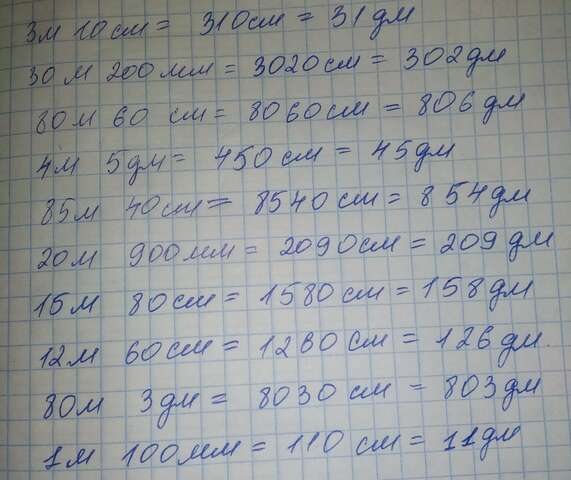 3м 10см = 310см = 31дм
30м 200мм = 3020см = 302дм
80м 60 см = 8060см = 806дм
4м 5дм = 450см = 45дм
85м 40см = 8540см = 854дм
20м 900мм = 2090см = 209дм
15м 80см = 1580см = 158дм
12м 60см = 1260см = 126дм.
80м 3дм = 8030см = 803дм
1м 100мм = 110см = 11дм